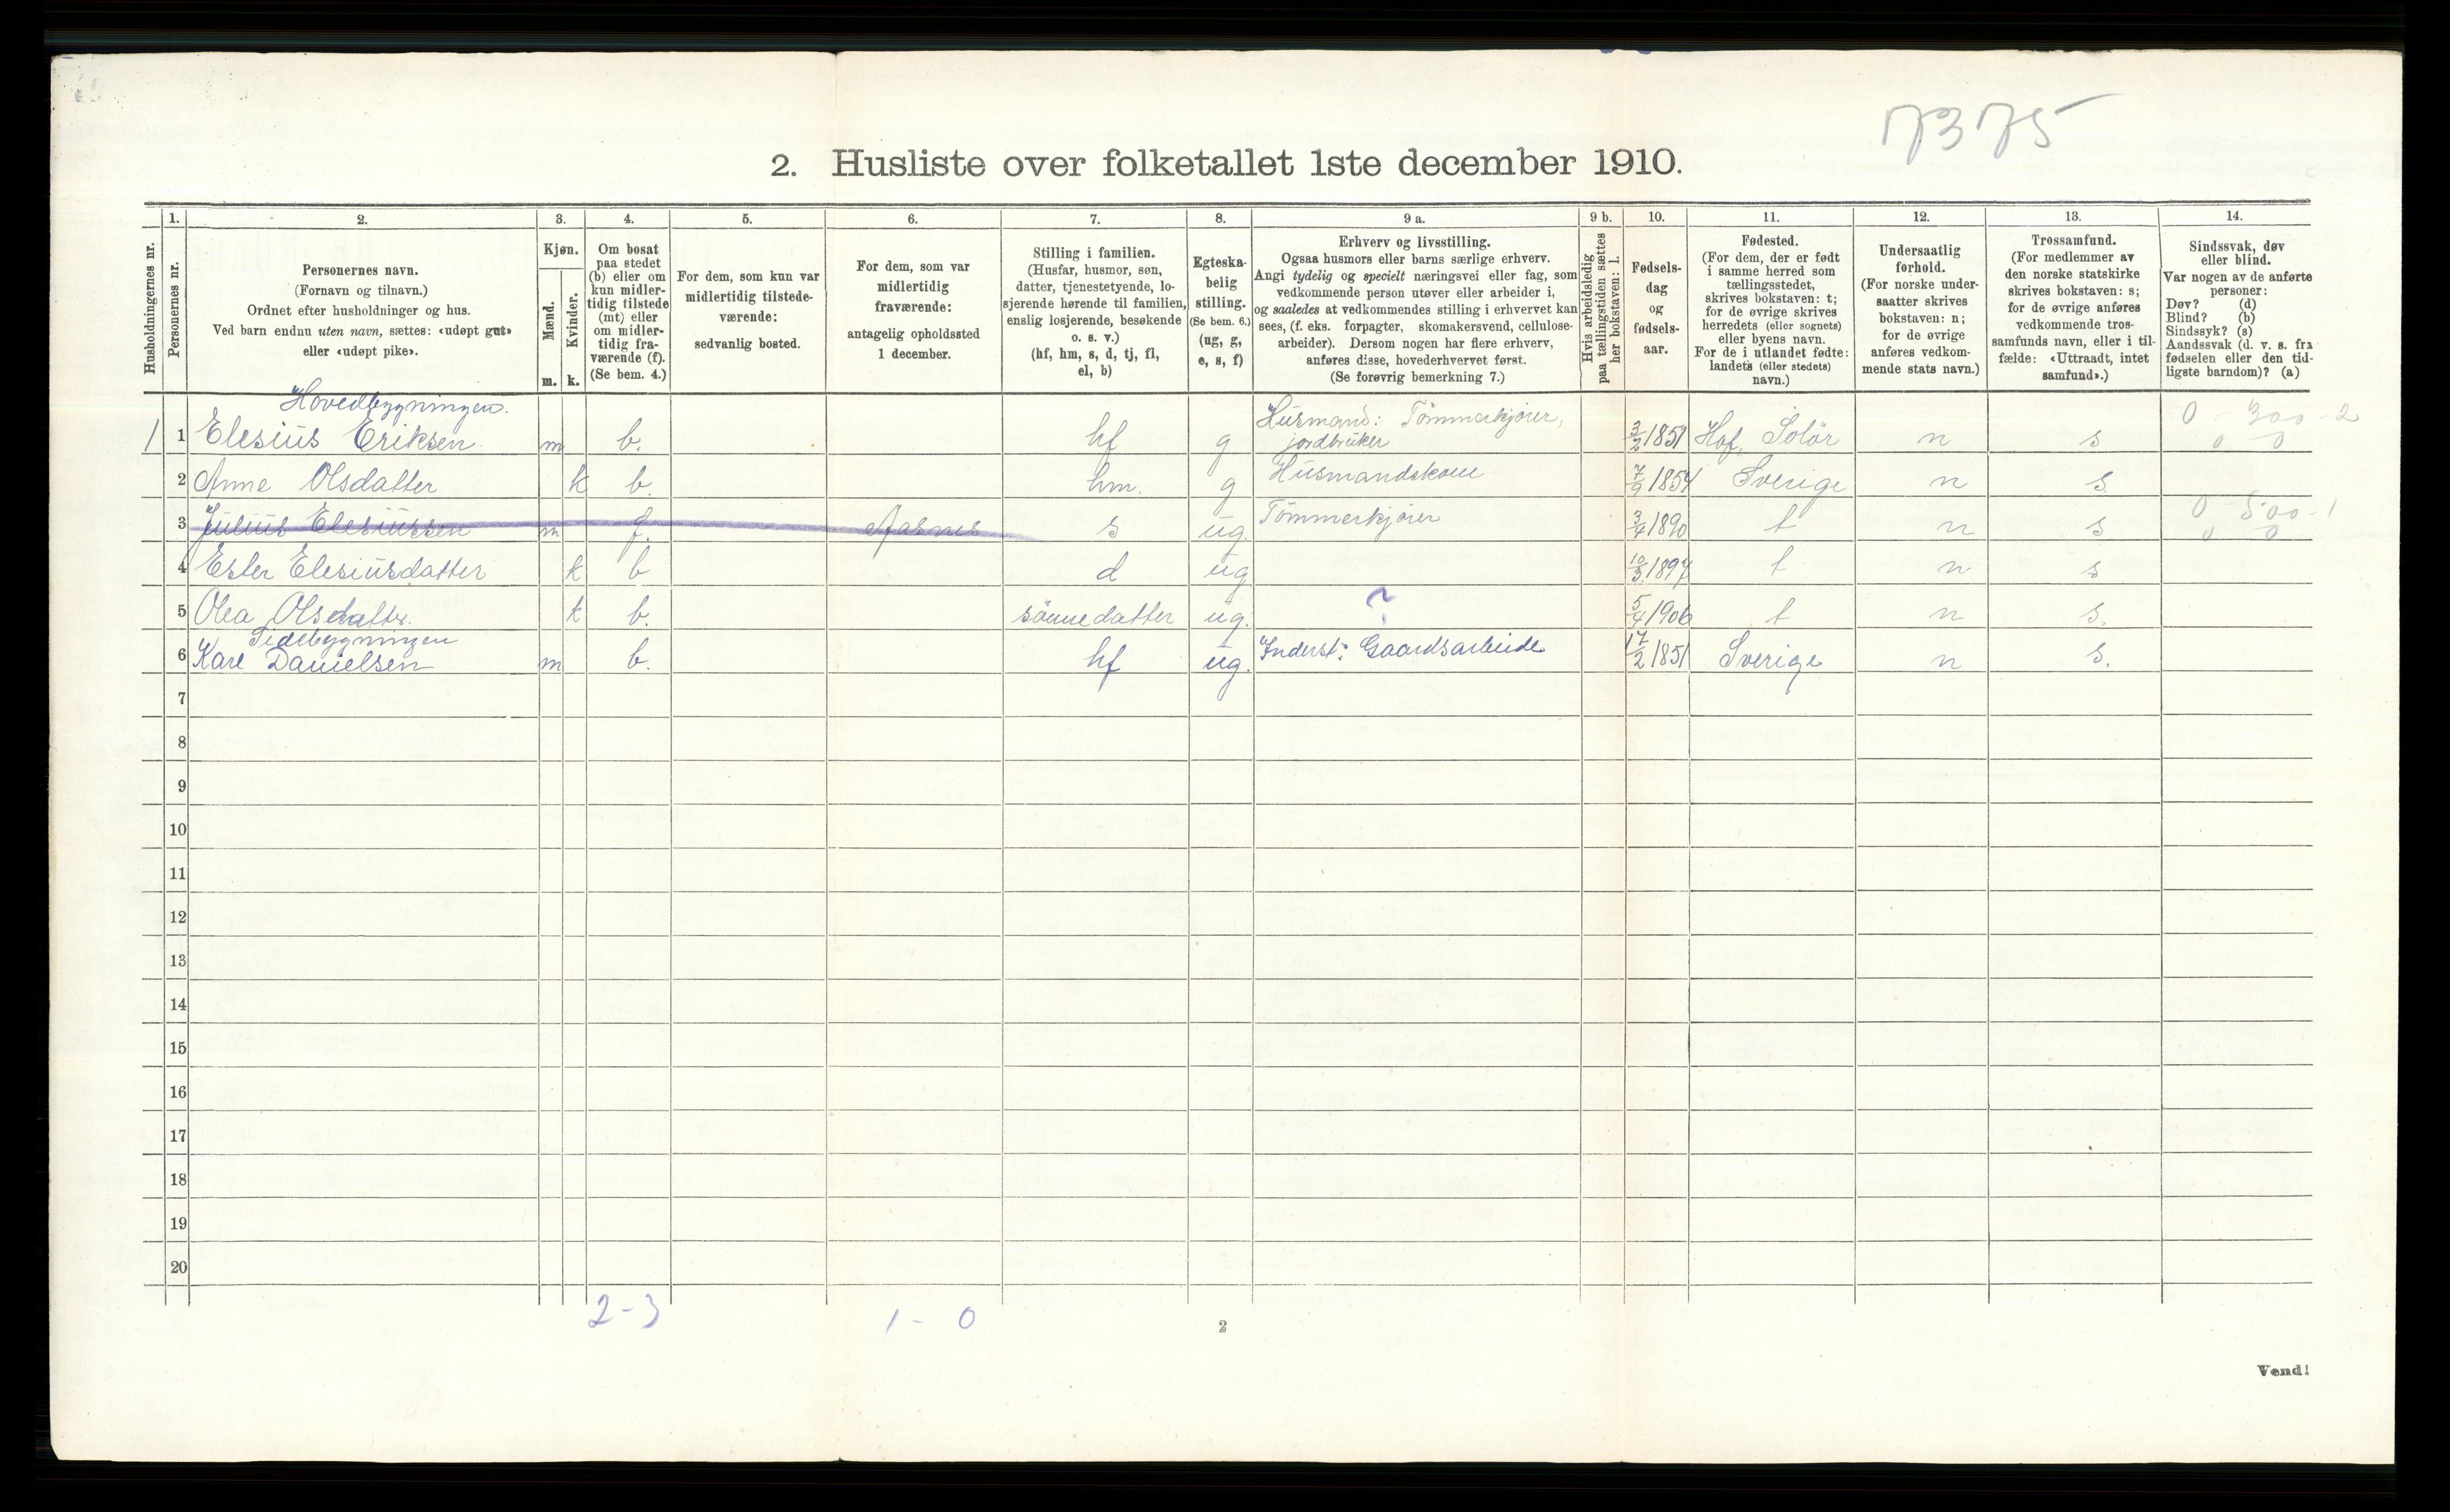 7375
2. Husliste over folketallet 1ste december 1910.
Husholdningernes nr.
1.
Personernes nr.
2.
Personernes navn.
(Fornavn og tilnavn.)
Ordnet efter husholdninger og hus.
Ved barn endnu uten navn, sættes: «udøpt gut»
eller «udøpt pike».
3.
Kjøn.
Mænd.
Kvinder.
m. k.
4.
Om bosat
paa stedet
(b) eller om
kun midler-
tidig tilstede
(mt) eller
om midler-
tidig fra-
værende (f).
(Se bem. 4.)
5.
For dem, som kun var
midlertidig tilstede-
værende:
sedvanlig bosted.
6.
For dem, som var
midlertidig
fraværende:
antagelig opholdssted
1 december.
7.
Stilling i familien.
(Husfar, husmor, søn,
datter, tjenestetyende, lo-
sjerende hørende til familien,
enslig losjerende, besøkende
o. s. v.)
(hf, hm, s, d, tj, fl,
el, b)
8.
Egteska-
belig
stilling.
(Se bem. 6.)
(ug, g,
e, s, f)
9 a.
Erhverv og livsstilling.
Ogsaa husmors eller barns særlige erhverv.
Angi tydelig og specielt næringsvei eller fag, som
vedkommende person utøver eller arbeider i,
og saaledes at vedkommendes stilling i erhvervet kan
sees, (f. eks. forpagter, skomakersvend, cellulose-
arbeider). Dersom nogen har flere erhverv,
anføres disse, hovederhvervet først.
(Se forøvrig bemerkning 7.)
9 b.
Hvis arbeidsledig
paa tællingstiden sættes
her bokstaven: l.
10.
Fødsels-
dag
og
fødsels-
aar.
11.
Fødested.
(For dem, der er født
i samme herred som
tællingsstedet,
skrives bokstaven: t;
for de øvrige skrives
herredets (eller sognets)
eller byens navn.
For de i utlandet fødte:
landets (eller stedets)
navn.)
12.
Undersaatlig
forhold.
(For norske under-
saatter skrives
bokstaven: n;
for de øvrige
anføres vedkom-
mende stats navn.)
13.
Trossamfund.
(For medlemmer av
den norske statskirke
skrives bokstaven: s;
for de øvrige anføres
vedkommende tros-
samfunds navn, eller i til-
fælde: «Uttraadt, intet
samfund».)
14.
Sindssvak, døv
eller blind.
Var nogen av de anførte
personer:
Døv? (d)
Blind? (b)
Sindssyk? (s)
Aandssvak (d. v. s. fra
fødselen eller den tid-
ligste barndom)? (a)
Hovedbygningen.
Husmand: Tömmerkjörer, 0 300-2
1 1 Elesius Eriksen m b. hf g jordbruker 3/2 1851 Hof, Solör n s 0 0
2 Anne Olsdatter k b. hm. g Husmandskone 7/9 1854 Sverige n s.
3 Julius Elesiussen m f. Aasnes s ug. Tömmerkjörer 3/4 1890 t n s 0 500-1
0 0
4 Ester Elesiusdatter k b d ug 10/3 1897 t n s
5 Olea Olsdatter. k b. sönnedatter ug. ? 5/4 1906 t n s.
Sidebygningen
6 Karl Danielsen m b. hf ug. Inderst: Gaardsarbeide 17/2 1851 Sverige n s.
7
8
9
10
11
12
13
14
15
16
17
18
19
20
2-3 1-0
2
Vend!